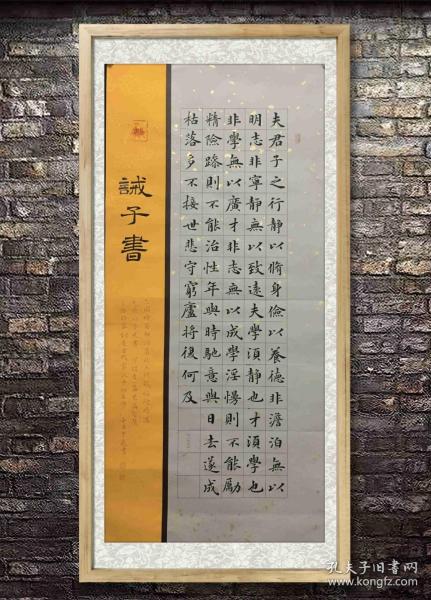 夫君子之行静以脩身儉以養德非澹泊無以
明志非寧靜無以致遠夫學須静也才須學也
非學無以廣才非志無以成學淫慢則不能勵
精險躁則不能治性年與時馳意與日去遂成
枯落多不接世悲守窮廬將復何及
誡子書
孔夫子旧书网
www.kongfz.com